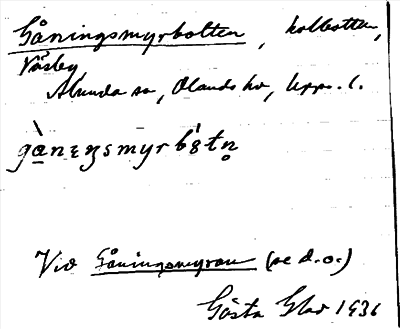 Gåningsmyrbotten, kolbotten,
Väsby
Alunda sn, Olands hd, Uppl.
gànıŋsmyrbót̥n̥
Vid Gåningsmyran (se d.o.)
Gösta 1936